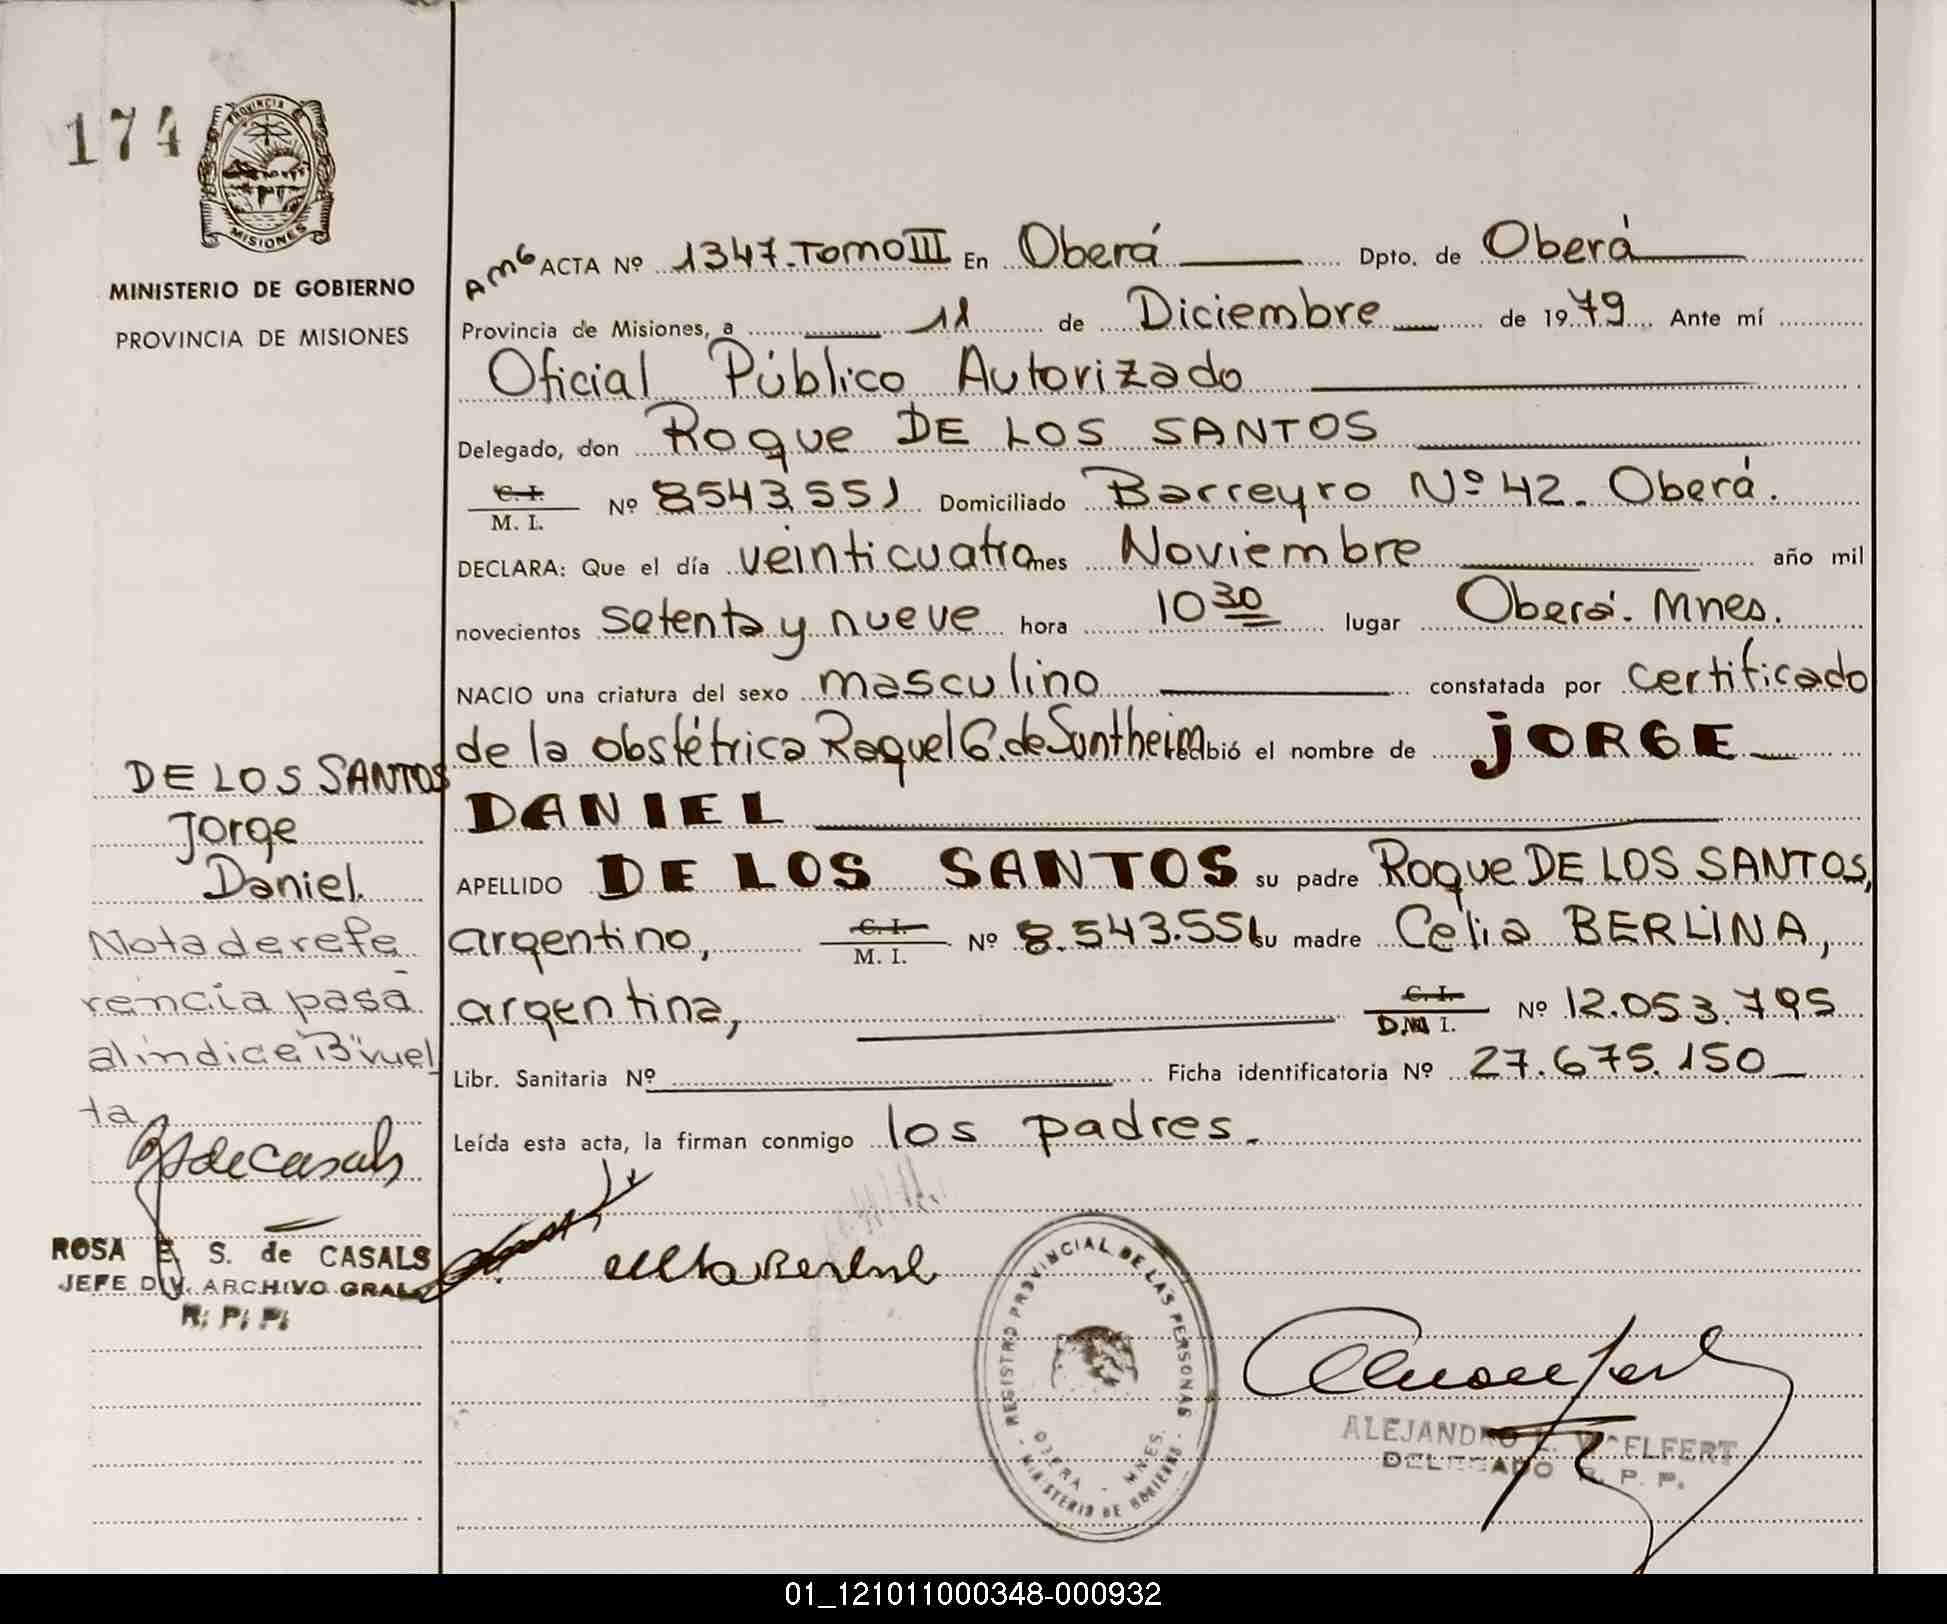 174
PROVINCIA
MISIONES
MINISTERIO DE GOBIERNO
PROVINCIA DE MISIONES
Am6 ACTA Nº 1347. Tomo III En Oberá Dpto. de Oberá
Provincia de Misiones, a 11 de Diciembre de 1979 Ante mí
Oficial Público Autorizado
Delegado, don Roque DE LOS SANTOS
C. I. M. I. Nº 8543.551 Domiciliado Barreyro Nº 42. Oberá.
DECLARA: Que el día veinticuatro mes Noviembre año mil
novecientos setenta y nueve hora 10 30 lugar Oberá. Mnes.
NACIO una criatura del sexo masculino constatada por certificado
de la obstétrica Raquel G. de Suntheim recibió el nombre de JORGE
DANIEL
APELLIDO DE LOS SANTOS su padre Roque DE LOS SANTOS,
argentino, C. I. M. I. Nº 8.543.551 su madre Celia BERLINA,
argentina, C. I. D.N I. Nº 12.053.795
Libr. Sanitaria Nº Ficha identificatoria Nº 27.675.150
Leída esta acta, la firman conmigo los padres.
DE LOS SANTOS
Jorge
Daniel.
Nota de refe
rencia pasa
al indice "B" vuel
ta
ROSA E. S. de CASALS
JEFE DIV. ARCHIVO GRAL.
R. P. P.
REGISTRO PROVINCIAL DE LAS PERSONAS
OBERA - MNES.
MINISTERIO DE GOBIERNO
ALEJANDRO WOELFERT
DELEGADO R. P. P.
01_121011000348-000932